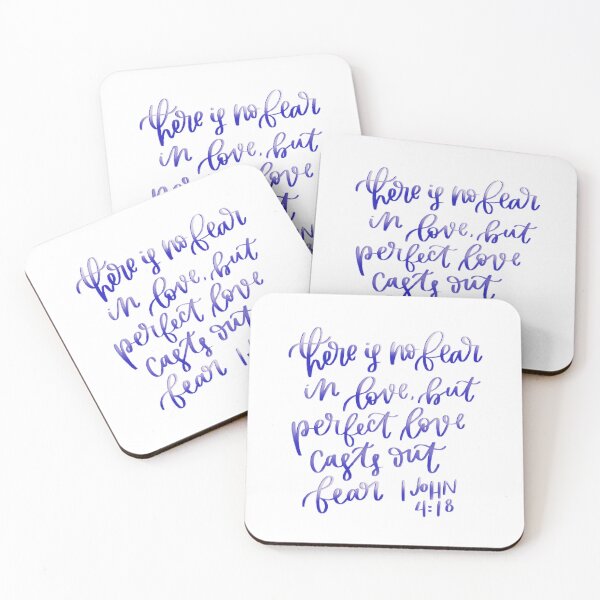 there is no fear
in love, but
love
there is no fear
in love, but
perfect love
casts out
there is no fear
in love, but
perfect love
casts out
fear 1
there is no fear
in love, but
perfect love
casts out
fear 1 JOHN
4:18